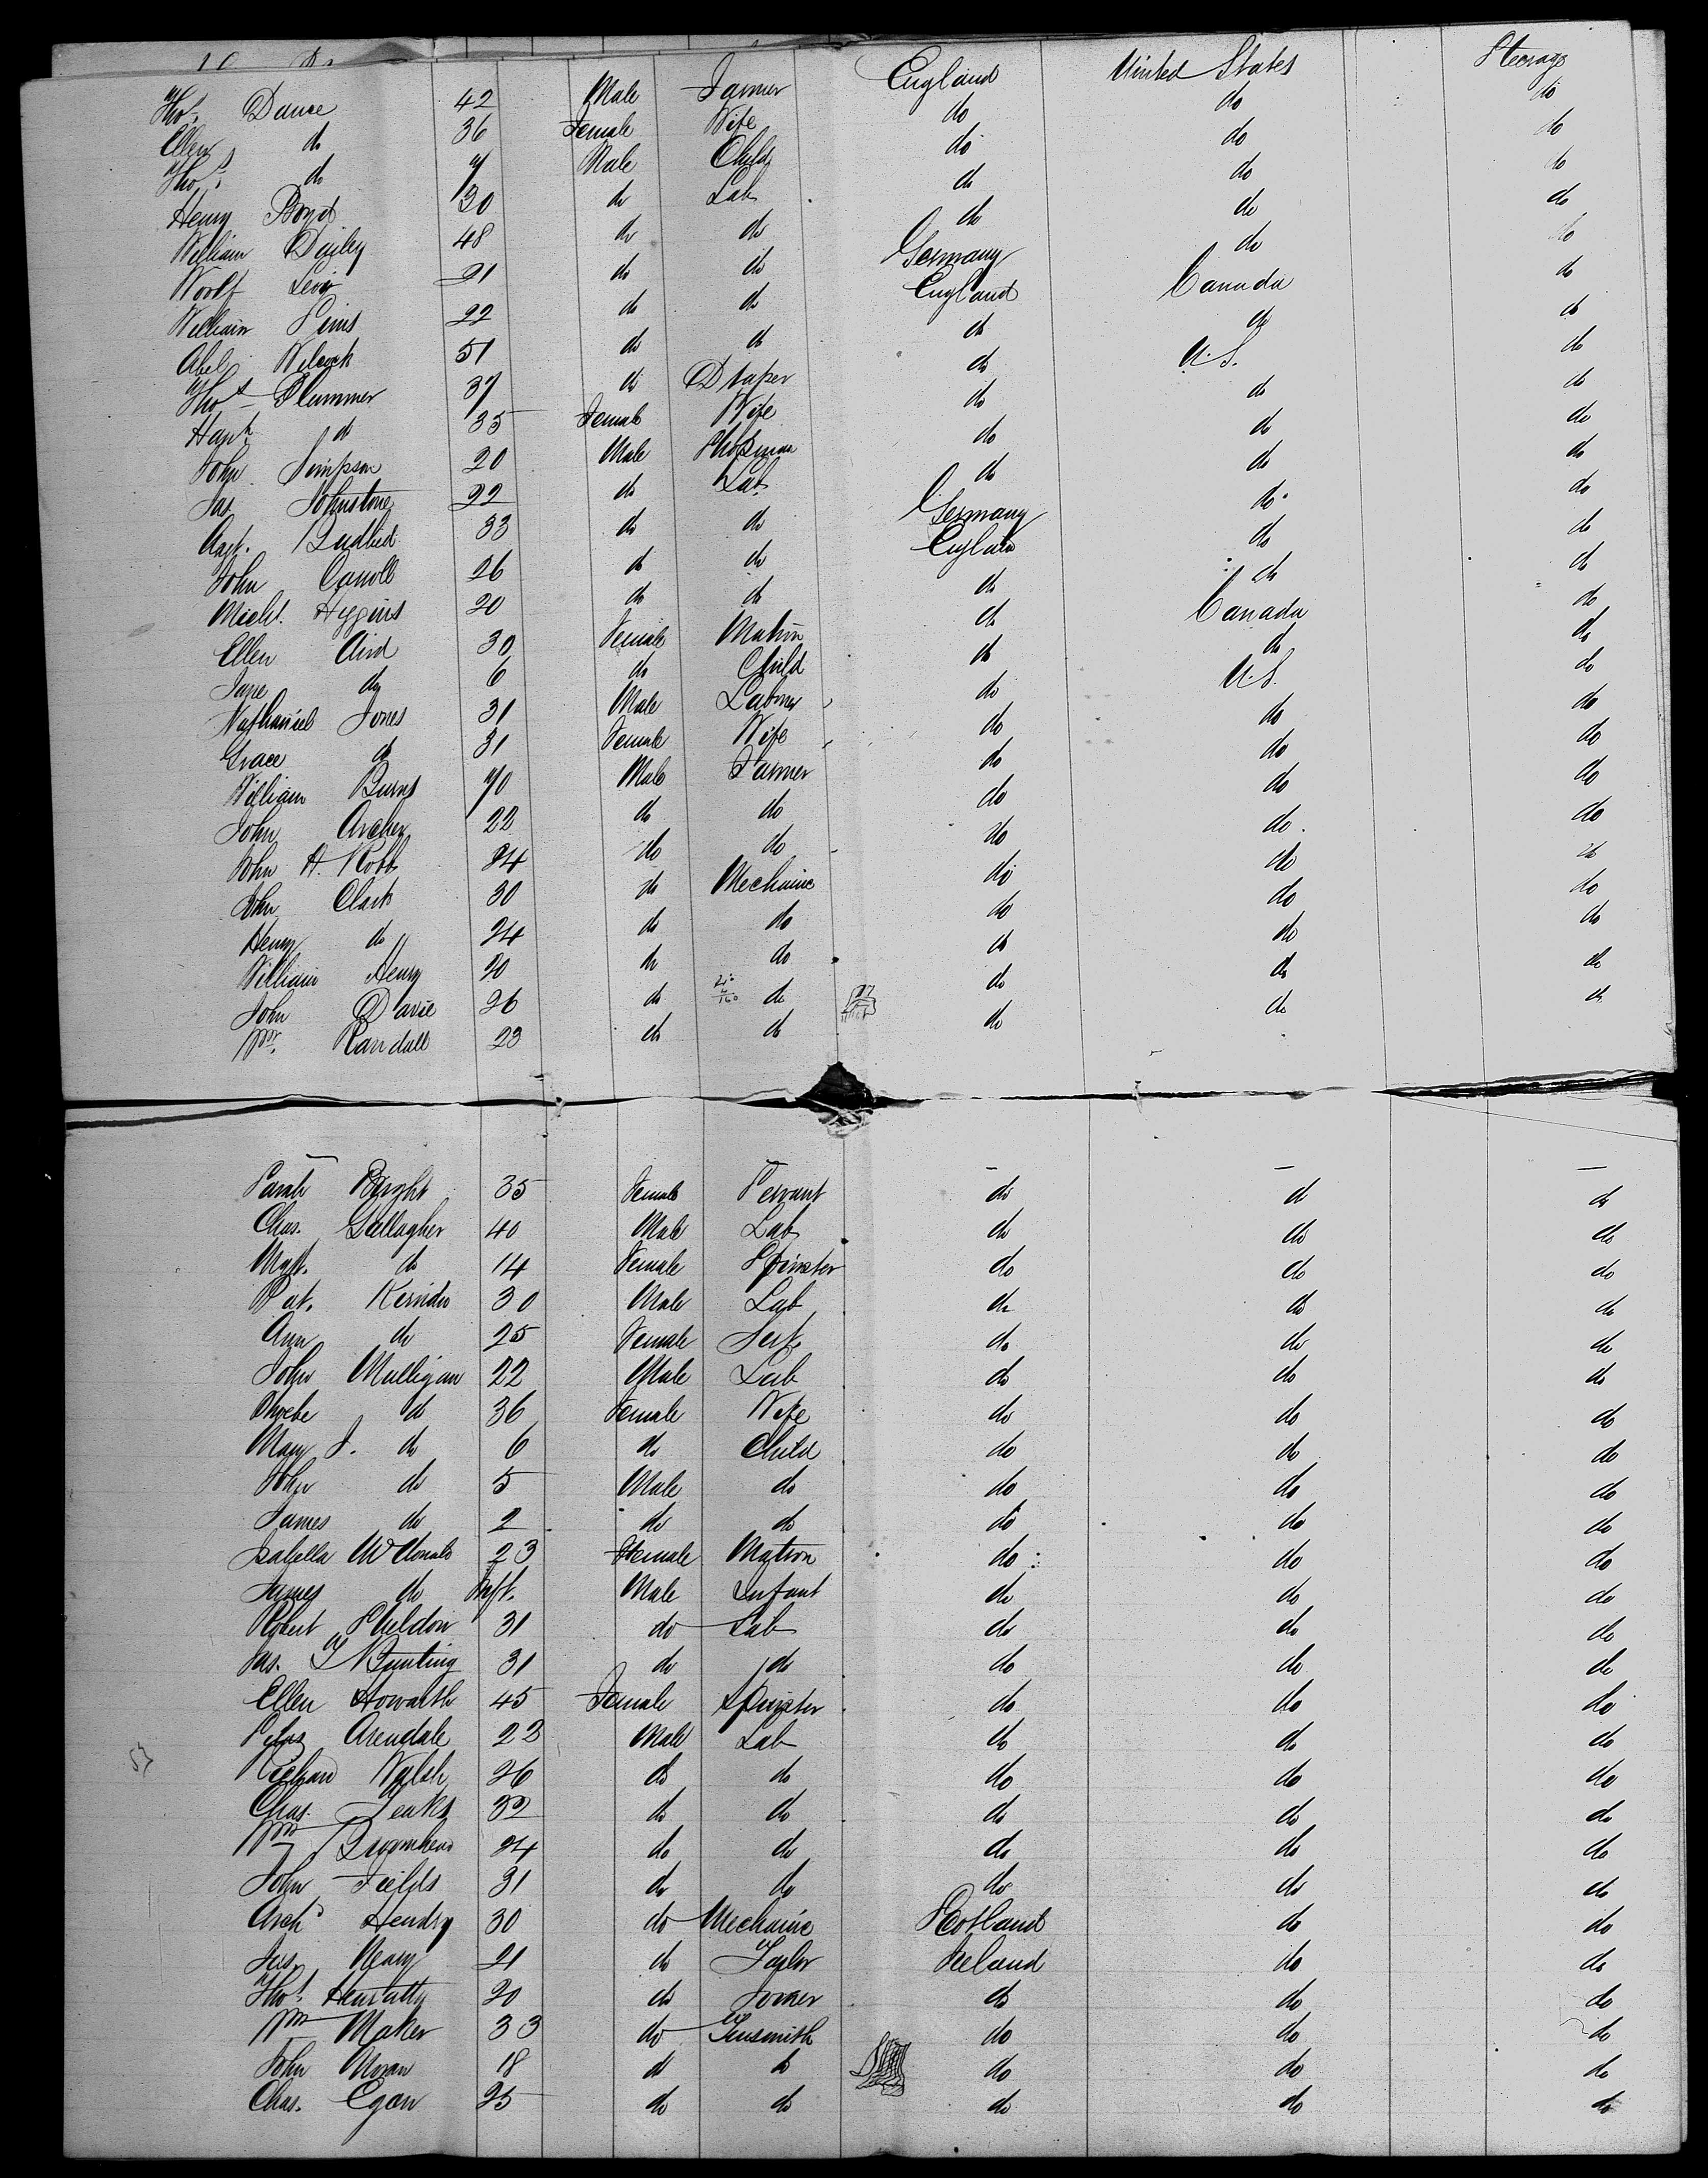 Thos. Dance 42 Male Farmer England United States Steerage
Ellen do 36 Female Wife do do do
Thos. do 7 Male Child do do do
Henry Boyd 30 do Lab do do do
William Dailey 48 do do do do do
Woolf Levy 21 do do Germany do do
William Sims 22 do do England Canada do
Abel Wilcock 51 do do do do do
Thos Plummer 37 do Draper do U.S. do
Hanh do 35 Female Wife do do do
John Simpson 20 Male Shopman do do do
Jas. Johnstone 22 do Lab do do do
Augt. 33 do do Germany do do
John Carroll 26 do do England do do
Michl. Higgins 20 do do do do do
Ellen Aird 30 Female Matron do Canada do
Jane do 6 do Child do do do
Nathaniel Jones 31 Male Labourer do U.S. do
Grace do 31 Female Wife do do do
William Burns 70 Male Farmer do do do
John Archer 22 do do do do do
John A. Robb 24 do do do do do
John Clark 30 do Mechanic do do do
Henry do 24 do do do do do
William Henry 20 do do do do do
John Davie 26 do do do do do
Wm. Randall 23 do do do do do
Sarah Bright 35 Female Servant do do do
Chas. Gallagher 40 Male Lab do do do
Mgt. do 14 Female Spinster do do do
Pat. 30 Male Lab do do do
Ann do 25 Female Sert. do do do
John Mulligan 22 Male Lab do do do
Phoebe do 36 Female Wife do do do
Mary J. do 6 do Child do do do
John do 5 Male do do do do
James do 2 do do do do do
Isabella McDonald 23 Female Matron do do do
James do Inft. Male Infant do do do
Robert Sheldon 31 do Lab do do do
Jas. T Bunting 31 do do do do do
Ellen Howarth 45 Female Spinster do do do
Peter Arendale 22 Male Lab do do do
Richard Walsh 26 do do do do do
Chas. Jeaks 32 do do do do do
Wm Broomhead 24 do do do do do
John Fields 31 do do do do do
Archd Hendry 30 do Mechanic Scotland do do
Jas. Neary 21 do Taylor Ireland do do
Thos. Hanratty 20 do Joiner do do do
Wm Maker 33 do Tinsmith do do do
John Moran 18 do do do do do
Chas. Egan 25 do do do do do